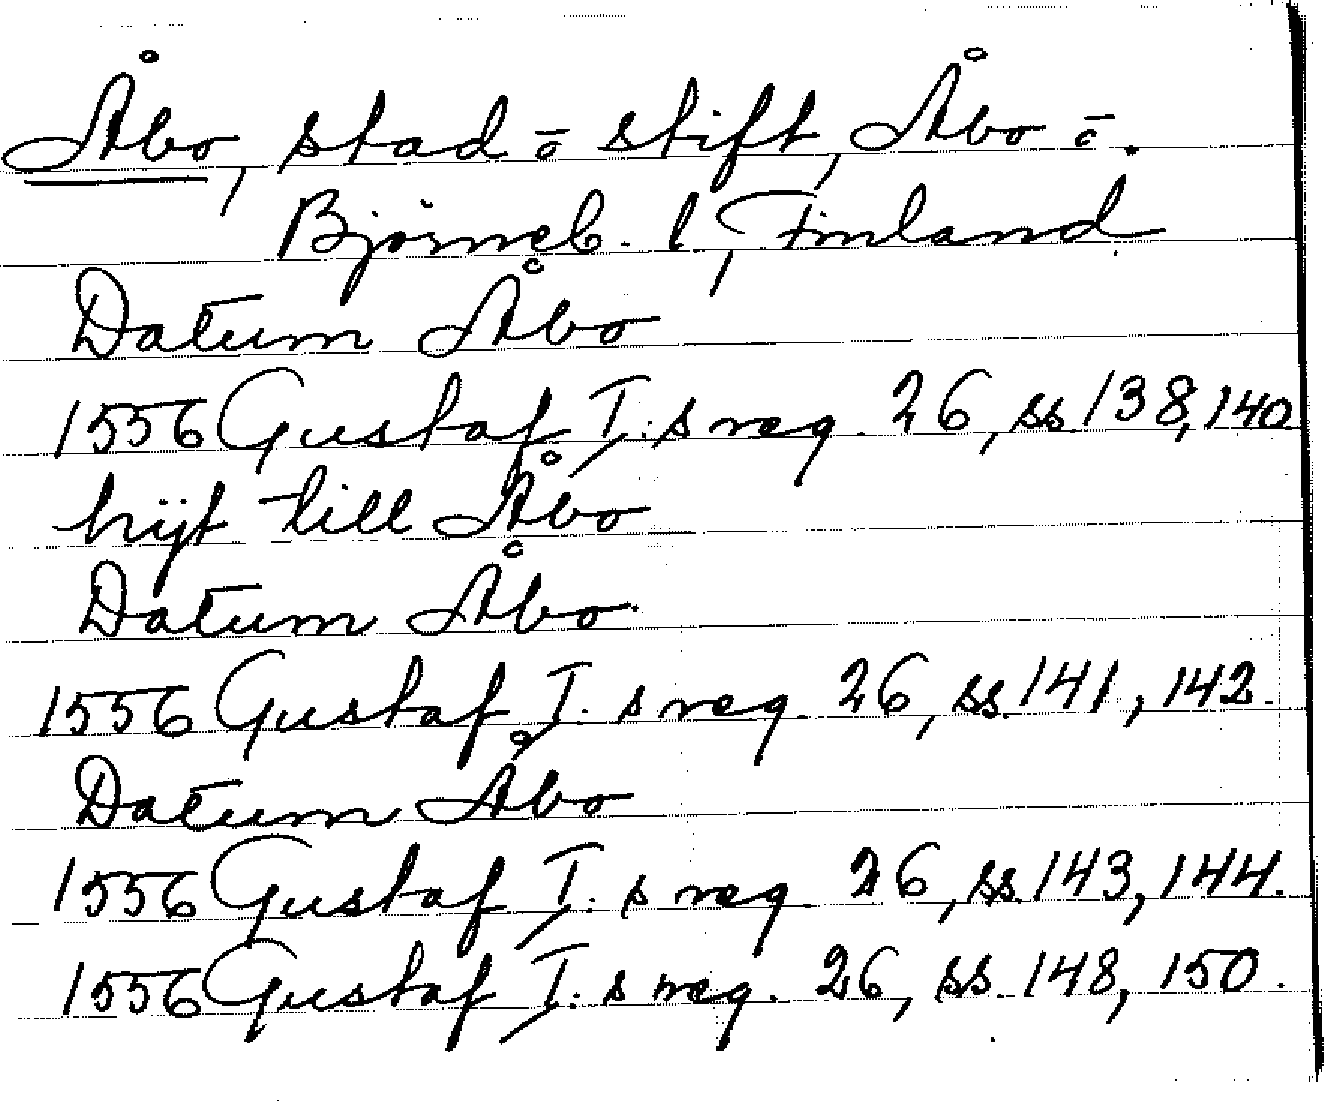 Åbo, stad o stift, Åbo o.
Björneb. l, Finland
Datum Åbo
1556 Gustaf I:s reg. 26, ss 138, 140
hijt till Åbo
Datum Åbo
1556 Gustaf I:s reg. 26, ss. 141, 142.
Datum Åbo
1556 Gustaf I:s reg. 26, ss. 143, 144.
1556 Gustaf I:s reg. 26, ss. 148, 150.